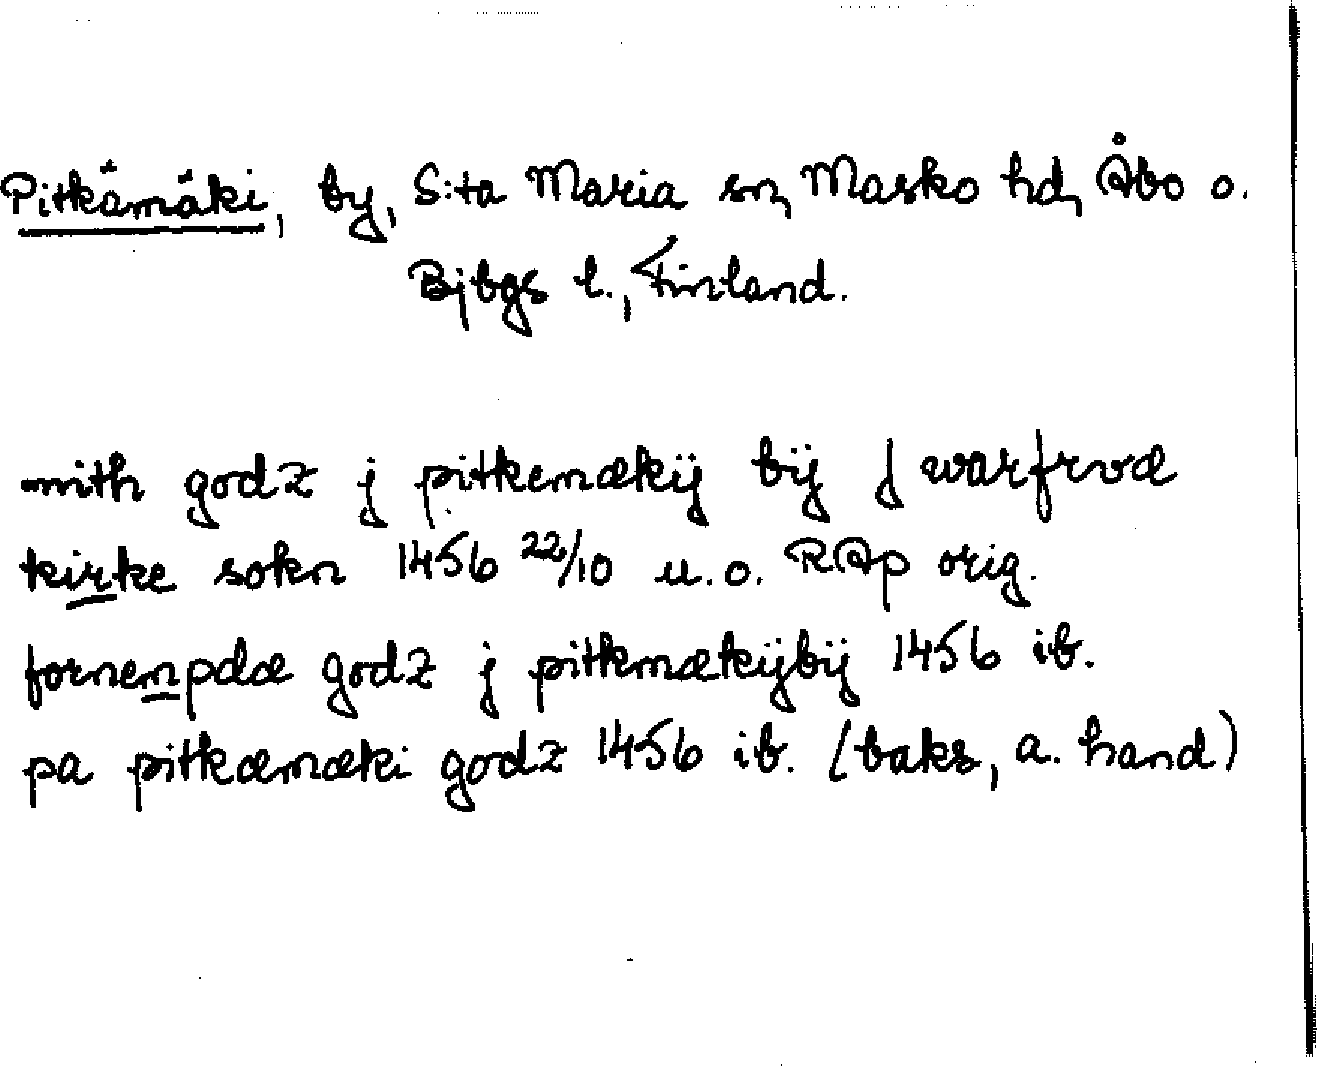 Pitkämäki, by, S:ta Maria sn, Masko hd, Åbo o.
Bjbgs l., Finland.
mith godz j pitkemækÿ bÿ j warfrvæ
kirke sokn 1456 22/10 u.o. RAp orig.
fornempdæ godz j pitkmækÿbÿ 1456 ib.
pa pitkæmæki godz 1456 ib. (baks, a. hand)